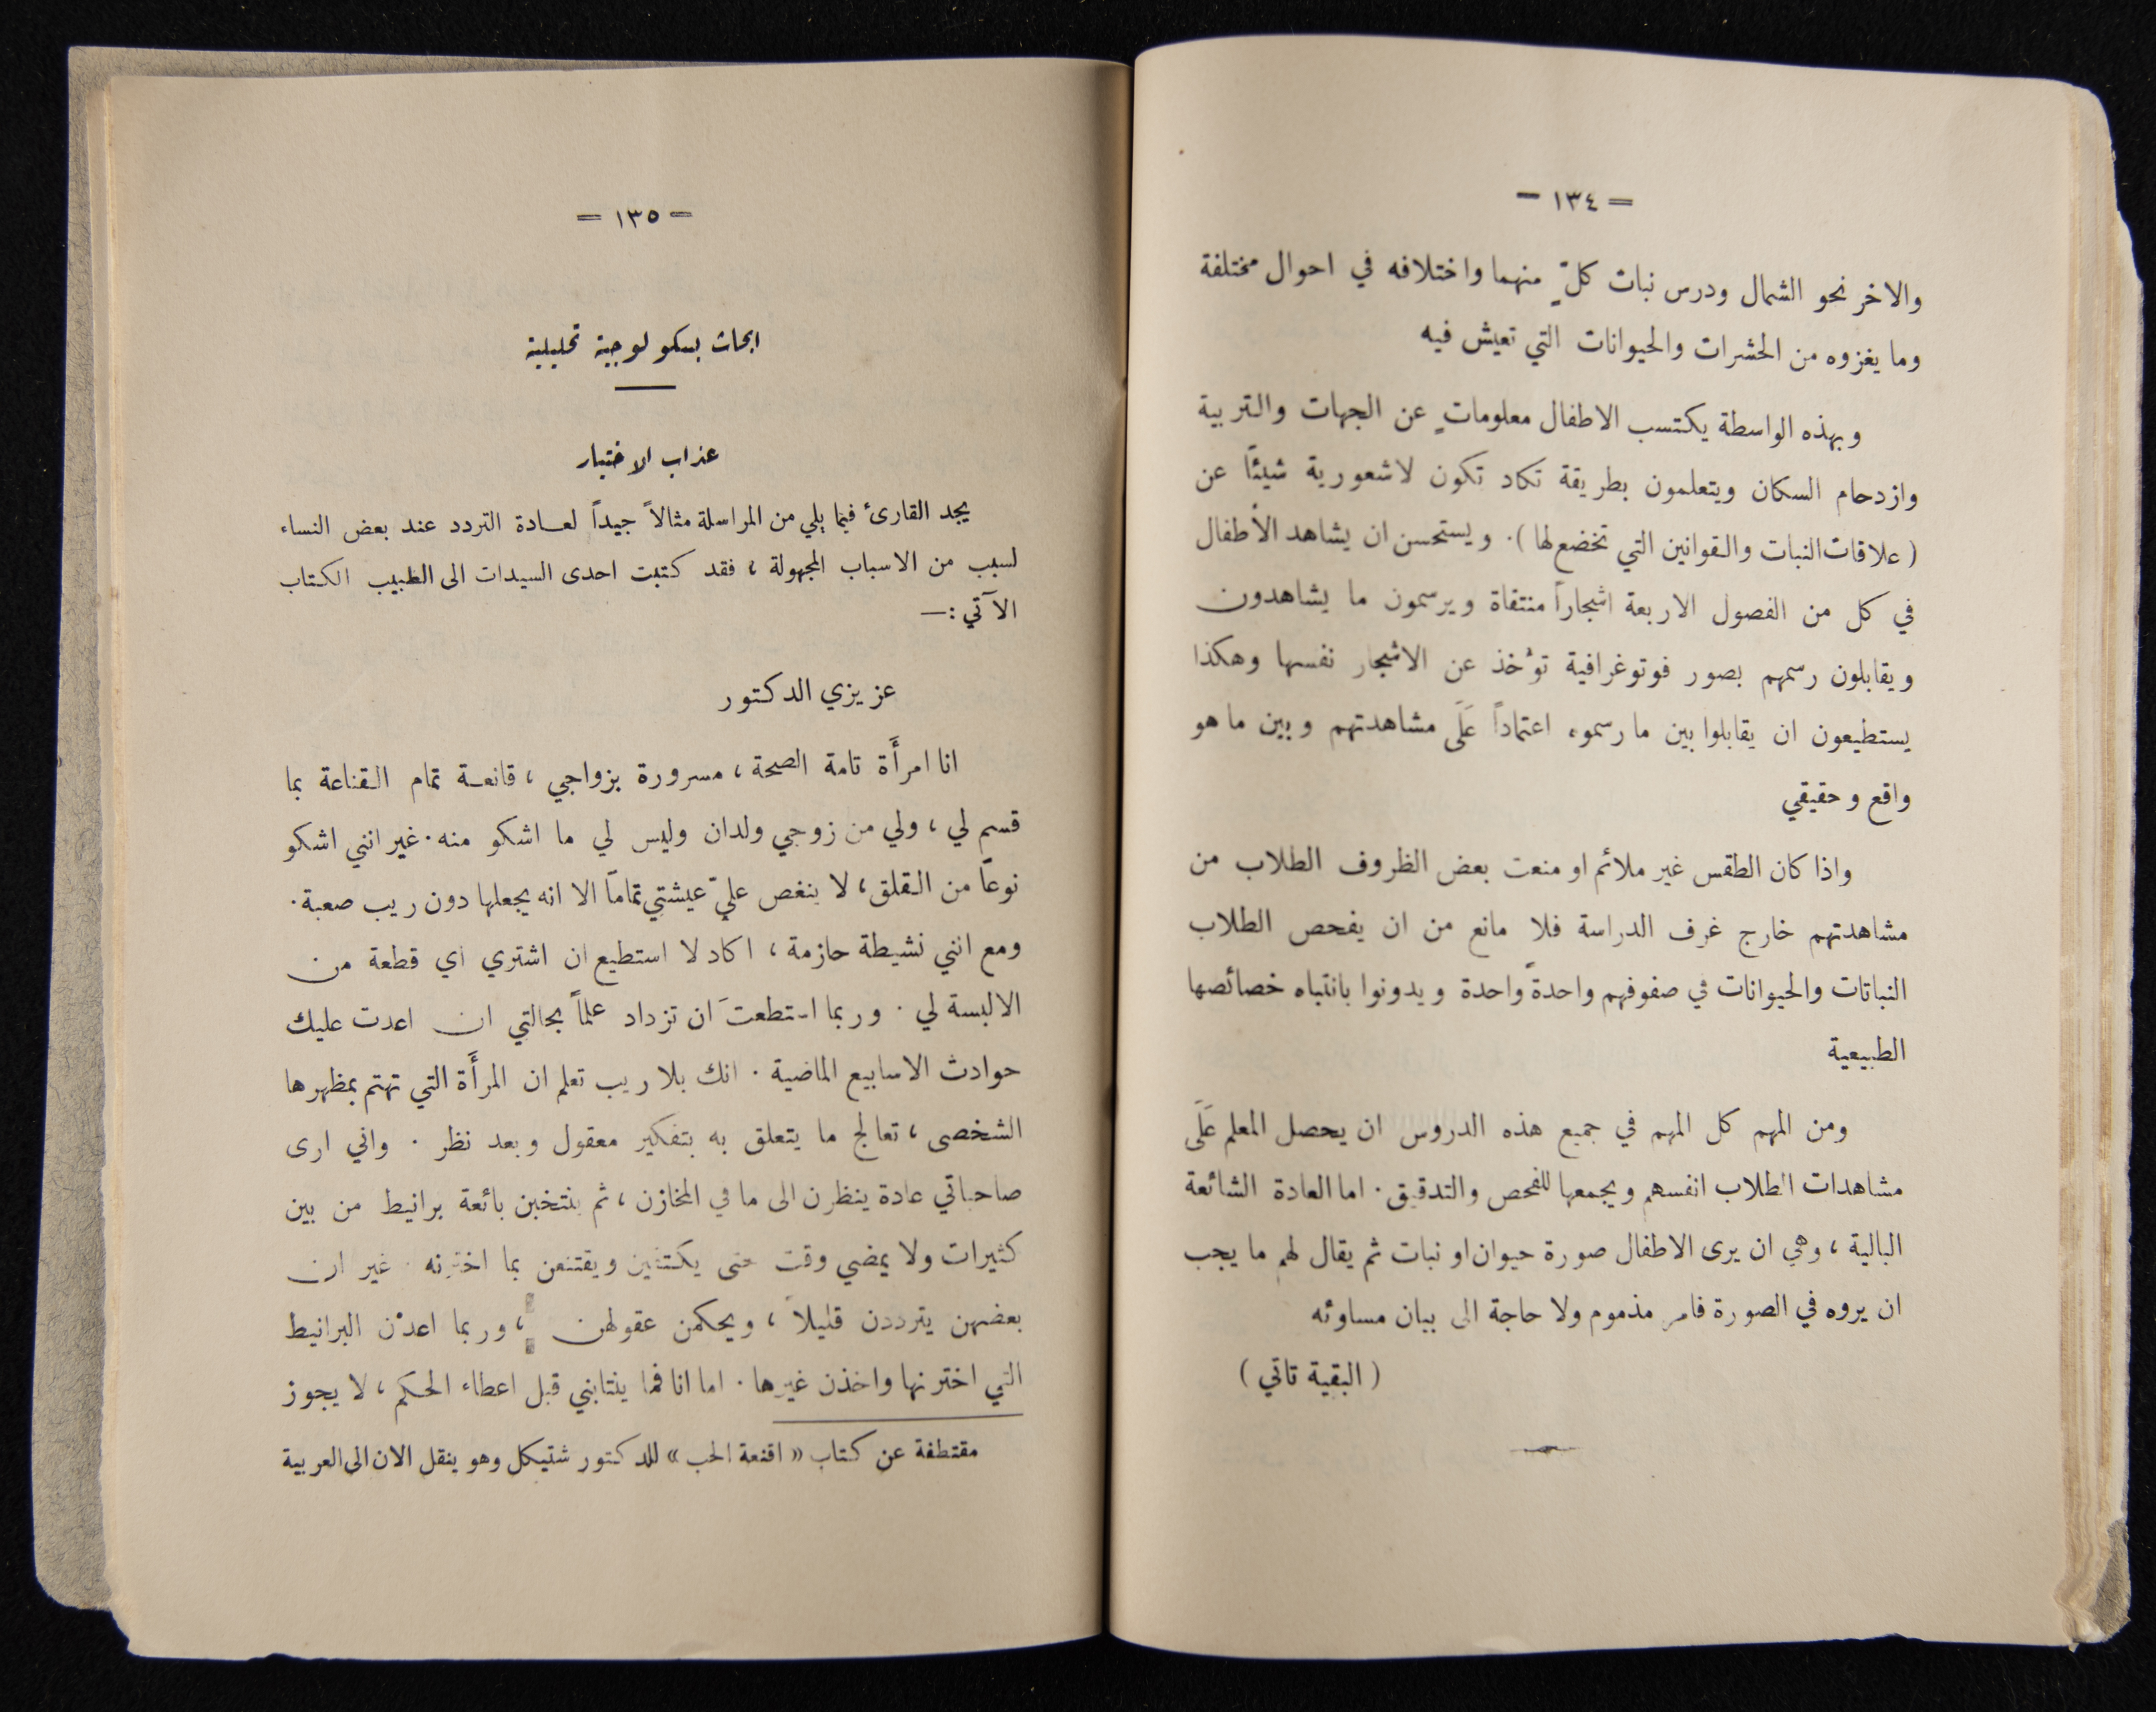 = ١٣٤ -
والاخر نحو الشمال ودرس نبات كلٍّ منهما واختلافه في احوال مختلفة
وما يغزوه من الحشرات والحيوانات التي تعيش فيه
وبهذه الواسطة يكتسب الاطفال معلوماتٍ عن الجهات والتربية
وازدحام السكان ويتعلمون بطريقة تكاد تكون لاشعورية شيئًا عن
( علاقات النبات والقوانين التي تخضع لها ). ويستحسن ان يشاهد الأطفال
في كل من الفصول الاربعة اشجاراً منتقاة ويرسمون ما يشاهدون
ويقابلون رسمهم بصور فوتوغرافية توُخذ عن الاشجار نفسها وهكذا
يستطيعون ان يقابلوا بين ما رسموه اعتماداً عَلَى مشاهدتهم وبين ما هو
واقع وحقيقي
واذا كان الطقس غير ملائم او منعت بعض الظروف الطلاب من
مشاهدتهم خارج غرف الدراسة فلا مانع من ان يفحص الطلاب
النباتات والحيوانات في صفوفهم واحدةً واحدة ويدونوا بانتباه خصائصها
الطبيعية
ومن المهم كل المهم في جميع هذه الدروس ان يحصل المعلم عَلَى
مشاهدات الطلاب انفسهم ويجمعها للفحص والتدقيق . اما العادة الشائعة
البالية ، وهي ان يرى الاطفال صورة حيوان او نبات ثم يقال لهم ما يجب
ان يروه في الصورة فامر مذموم ولا حاجة الى بيان مساوئه
( البقية تاتي )
= ١٣٥ -
ابحاث بسكولوجية تحليلية
عذاب الاختيار
يجد القارئ فيما يلي من المراسلة مثالاً جيداً لعادة التردد عند بعض النساء
لسبب من الاسباب المجهولة ، فقد كتبت احدى السيدات الى الطبيب الكتاب
الآتي :—
عزيزي الدكتور
انا امرأَة تامة الصحة ، مسرورة بزواجي ، قانعة تمام القناعة بما
قسم لي ، ولي من زوجي ولدان وليس لي ما اشكو منه . غير انني اشكو
نوعاً من القلق ، لا ينغص عليّ عيشتي تماماً الا انه يجعلها دون ريب صعبة .
ومع انني نشيطة حازمة ، اكاد لا استطيع ان اشتري اي قطعة من
الالبسة لي . وربما استطعتَ ان تزداد علماً بحالتي ان اعدت عليك
حوادث الاسابيع الماضية . انك بلا ريب تعلم ان المرأَة التي تهتم بمظهرها
الشخصى ، تعالج ما يتعلق به بتفكير معقول وبعد نظر . واني ارى
صاحباتي عادة ينظرن الى ما في المخازن ، ثم ينتخبن بائعة برانيط من بين
كثيرات ولا يمضي وقت حتى يكتفين ويقتنعن بما اخترنه . غير ان
بعضهن يترددن قليلاً ، ويحكمن عقولهن ، وربما اعدْن البرانيط
التي اخترنها واخذن غيرها . اما انا فما ينتابني قبل اعطاء الحكم ، لا يجوز
مقتطفة عن كتاب « اقنعة الحب » للدكتور شتيكل وهو ينقل الان الى العربية